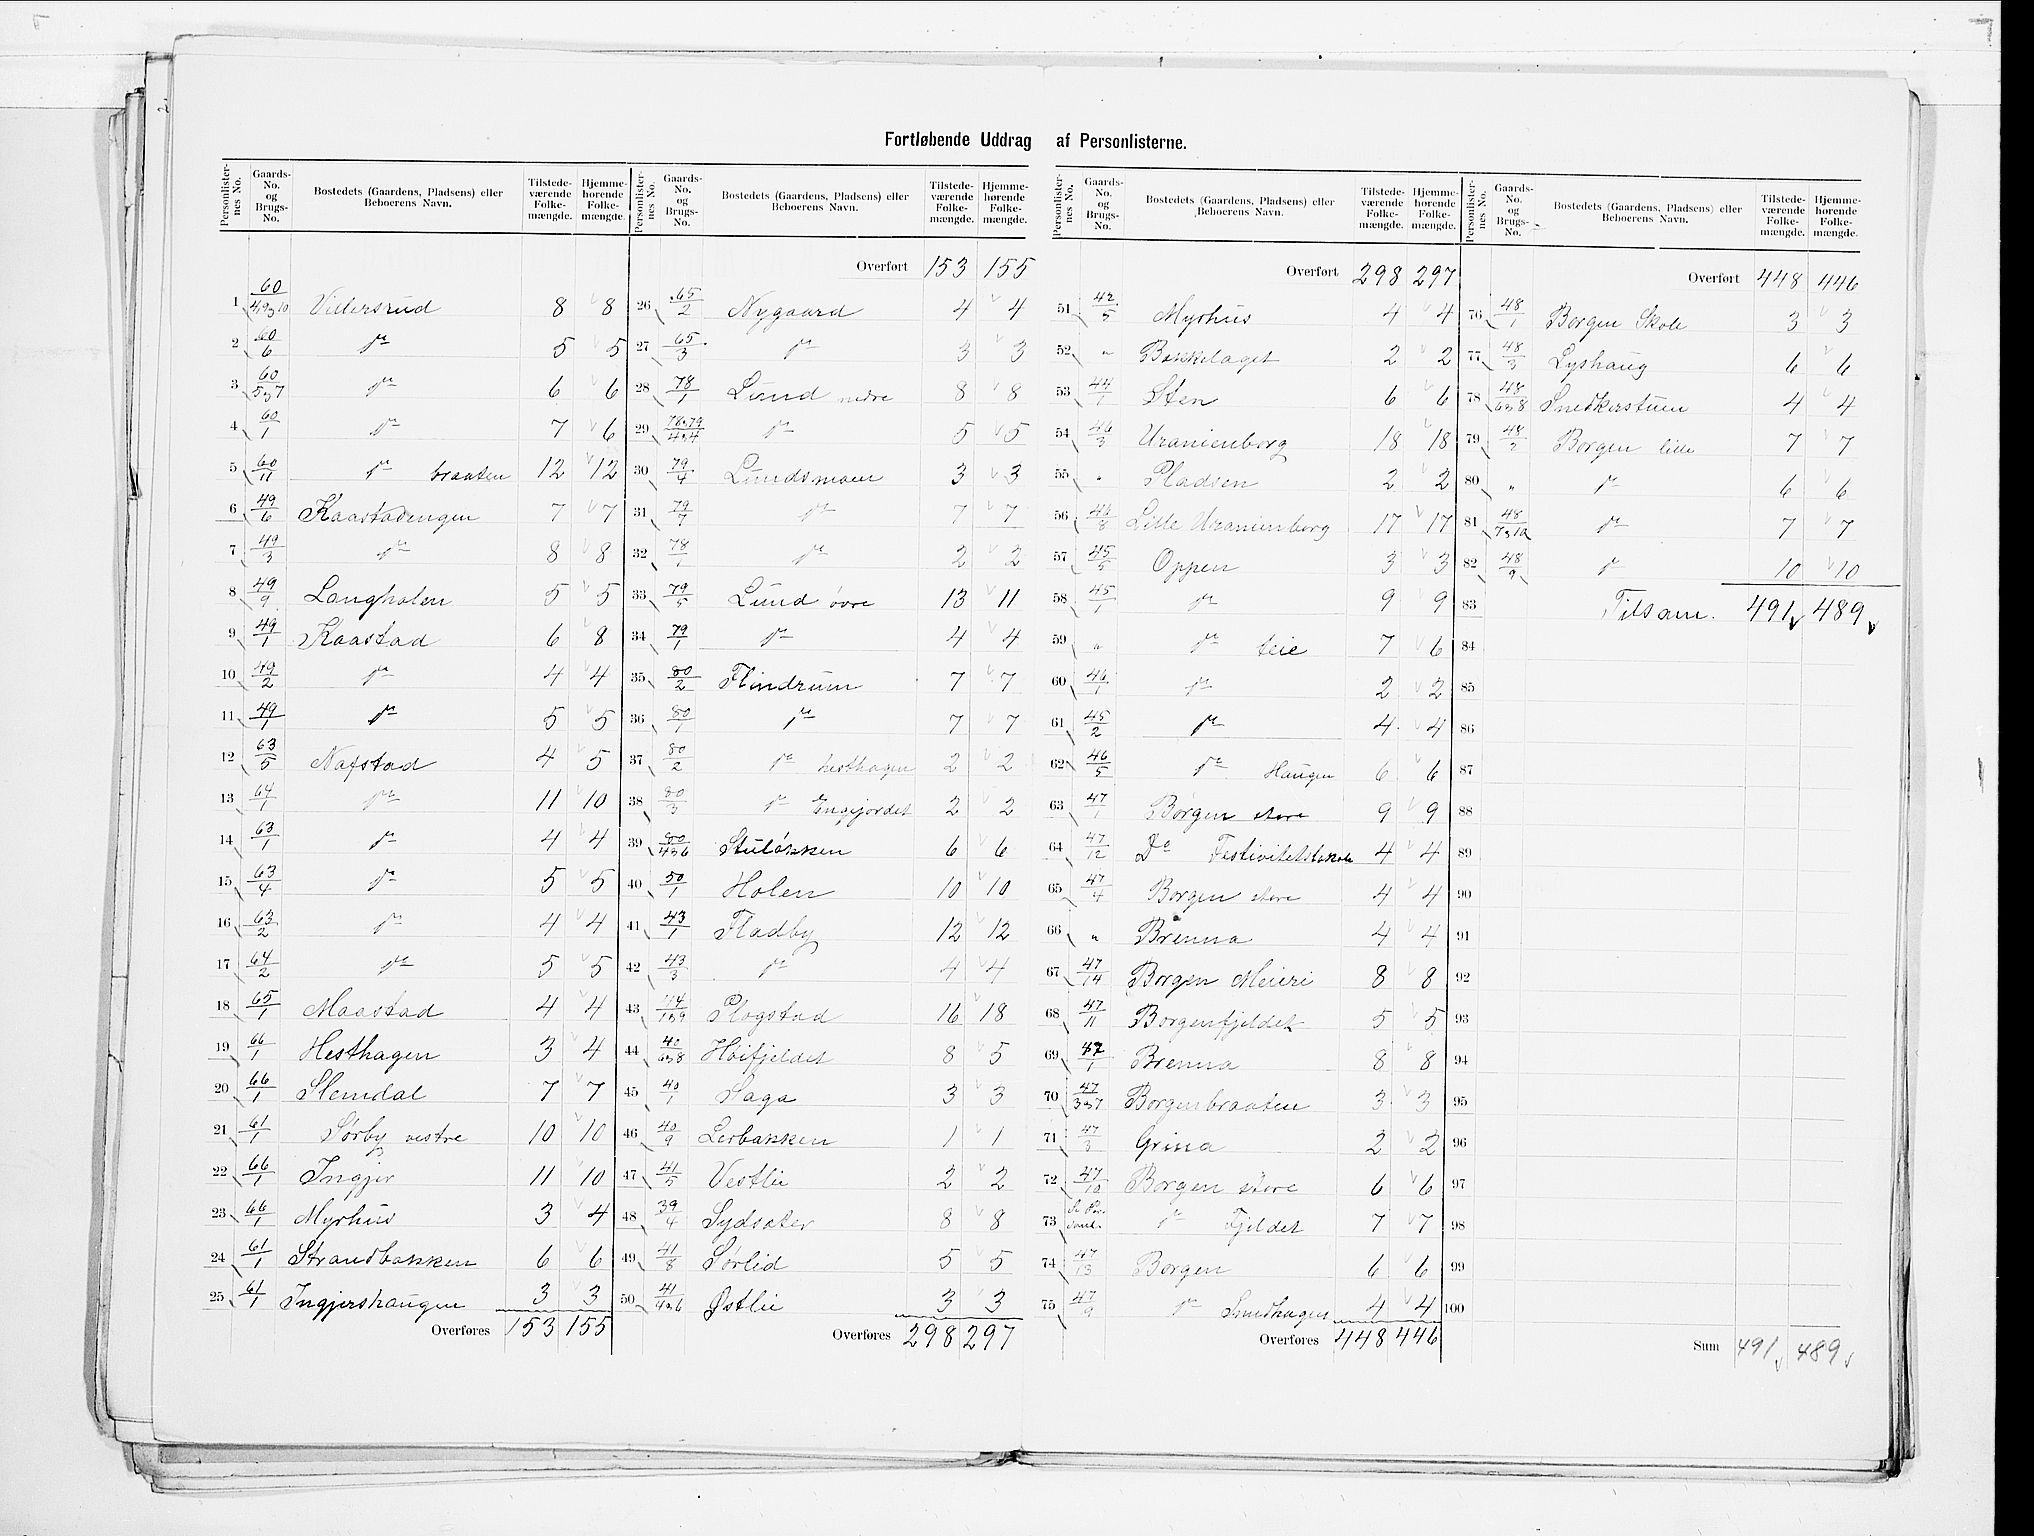 Fortløbende Uddrag af Personlisterne.
Personlister-nes No. | Gaards-No. og Brugs-No. | Bostedets (Gaardens, Pladsens) eller Beboerens Navn. | Tilstede-værende Folke-mængde. | Hjemme-hørende Folke-mængde.
1 60/4,9og10 Villersrud 8 8
2 60/6 do 5 5
3 60/5og7 do 6 6
4 60/1 do 7 6
5 60/11 do braaten 12 12
6 49/6 Kaastadengen 7 7
7 49/3 do 8 8
8 49/9 Langholen 5 5
9 49/1 Kaastad 6 8
10 49/2 do 4 4
11 49/1 do 5 5
12 63/5 Nafstad 4 5
13 64/1 do 11 10
14 63/1 do 4 4
15 63/4 do 5 5
16 63/2 do 4 4
17 64/2 do 5 5
18 65/1 Maastad 4 4
19 66/1 Hesthagen 3 4
20 66/1 Slemdal 7 7
21 61/1 Sørby vestre 10 10
22 66/1 Ingjer 11 10
23 66/1 Myrhus 3 4
24 61/1 Strandbakken 6 6
25 61/1 Ingjershaugen 3 3
Overføres 153 155
Personlister-nes No. | Gaards-No. og Brugs-No. | Bostedets (Gaardens, Pladsens) eller Beboerens Navn. | Tilstede-værende Folke-mængde. | Hjemme-hørende Folke-mængde.
Overført 153 155
26 65/2 Nygaard 4 4
27 65/3 do 3 3
28 78/1 Lund nedre 8 8
29 78og79/4og4 do 5 5
30 79/4 Lundsmoen 3 3
31 79/7 do 7 7
32 78/1 do 2 2
33 79/5 Lund övre 13 11
34 79/1 do 4 4
35 80/2 Flindrum 7 7
36 80/1 do 7 7
37 80/2 do hesthagen 2 2
38 80/3 do Engejordet 2 2
39 80/4og6 Stuløkken 6 6
40 50/1 Holen 10 10
41 43/1 Fladby 12 12
42 43/3 do 4 4
43 44/1og9 Plogstad 16 18
44 40/6og8 Höifjeldet 8 5
45 40/1 Saga 3 3
46 40/9 Lerbakken 1 1
47 41/5 Vestlie 2 2
48 39/4 Sydsæter 8 8
49 41/8 Sørlid 5 5
50 41/4og6 Østlie 3 3
Overføres 298 297
Personlister-nes No. | Gaards-No. og Brugs-No. | Bostedets (Gaardens, Pladsens) eller Beboerens Navn. | Tilstede-værende Folke-mængde. | Hjemme-hørende Folke-mængde.
Overført 298 297
51 42/5 Myrhus 4 4
52 " Bakkelaget 2 2
53 44/1 Sten 6 6
54 46/3 Uranienborg 18 18
55 " Pladsen 2 2
56 46/8 Lille Uranienborg 17 17
57 45/5 Oppen 3 3
58 45/1 do 9 9
59 " do teie 7 6
60 46/1 do 2 2
61 45/2 do 4 4
62 46/5 do Haugen 6 6
63 47/1 Borgen store 9 9
64 47/12 Do Festivitetslokale 4 4
65 47/4 Borgen store 4 4
66 " Brenna 4 4
67 47/14 Borgen Meieri 8 8
68 47/11 Borgenfjeldet 5 5
69 47/1 Brenna 8 8
70 47/3og7 Borgenbraaten 3 3
71 47/3 Grina 2 2
72 47/10 Borgen store 6 6
73 do Fjeldet 7 7
74 47/13 Borgen 6 6
75 47/9 do Smedhagen 4 4
Overføres 448 446
Personlister-nes No. | Gaards-No. og Brugs-No. | Bostedets (Gaardens, Pladsens) eller Beboerens Navn. | Tilstede-værende Folke-mængde. | Hjemme-hørende Folke-mængde.
Overført 448 446
76 48/1 Borgen Skole 3 3
77 48/3 Lyshaug 6 6
78 48/6og8 Snedkerstuen 4 4
79 48/2 Borgen lille 7 7
80 " do 6 6
81 48/7og10 do 7 7
82 48/9 do 10 10
83 Tilsam. 491 489
84
85
86
87
88
89
90
91
92
93
94
95
96
97
98
99
100
Sum 491 489